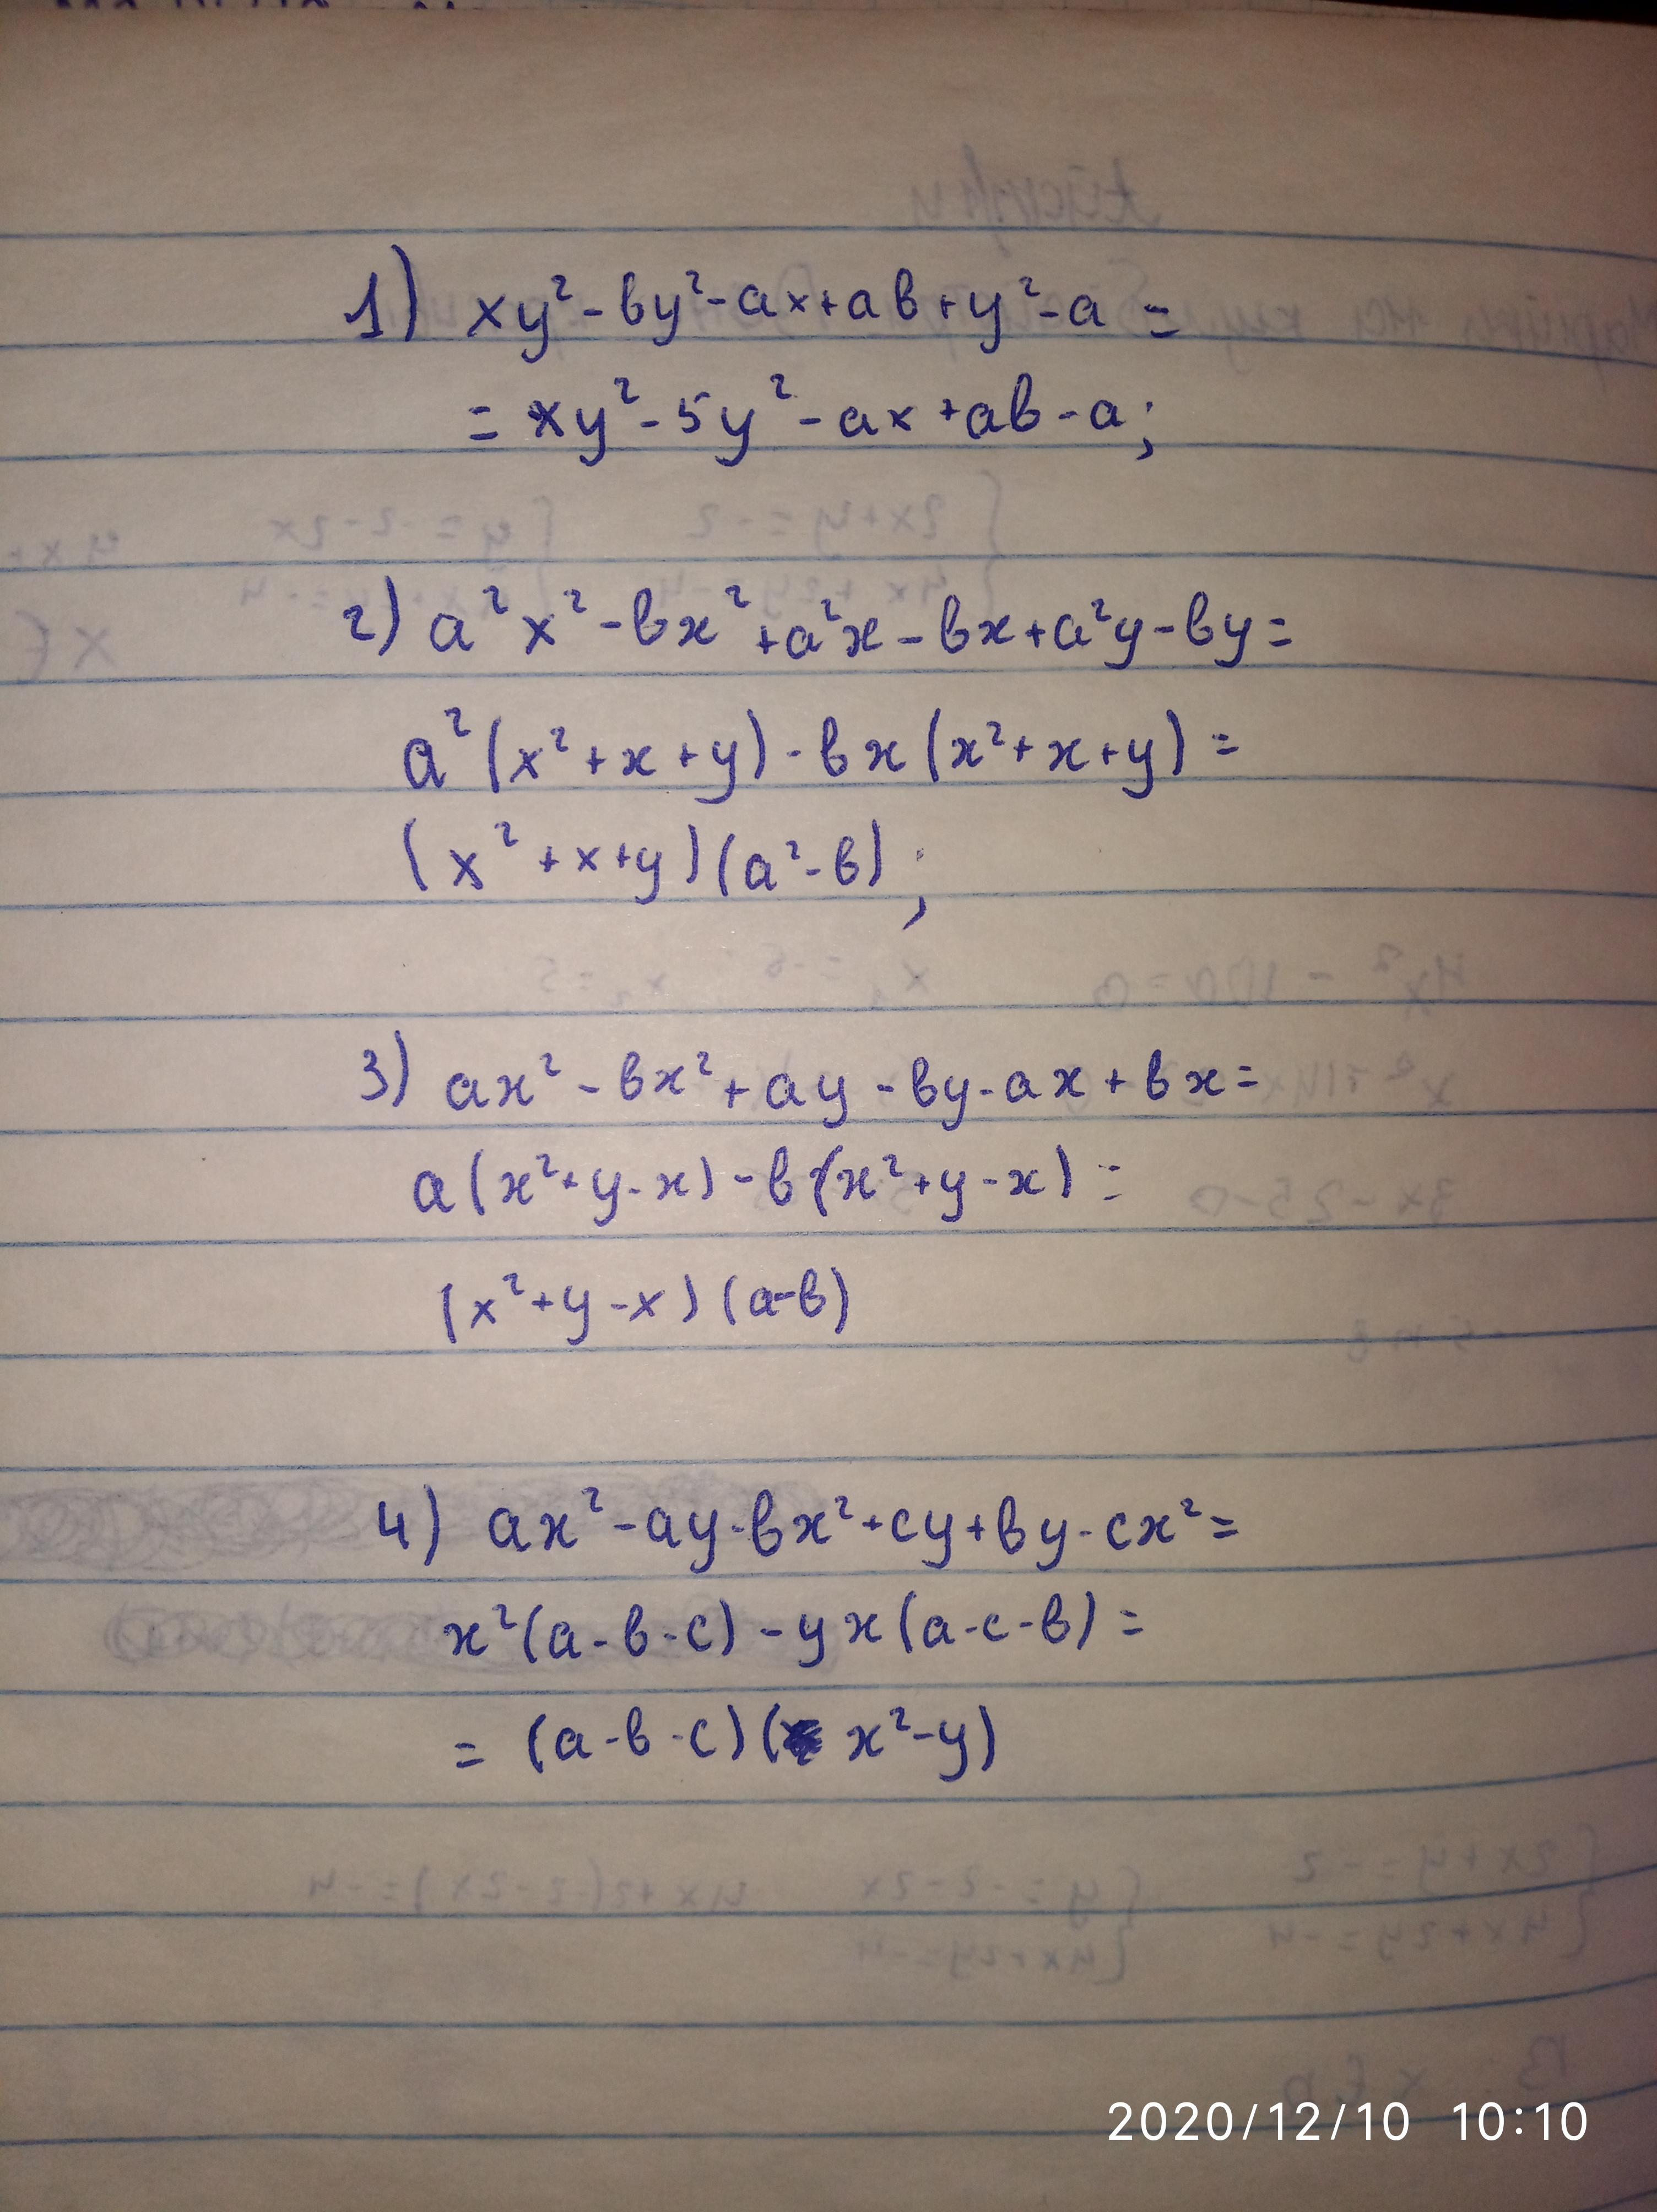 1) xy²-вy²-ax+aв+y²-a=
=xy²-5y²-ax+aв-a;
2) a²x²-вx²+a²x-вx+a²y-вy=
a²(x²+x+y)-вx(x²+x+y)=
(x²+x+y)(a²-в);
3) ax²-вx²+ay-вy-ax+вx=
a(x²+y-x)-в(x²+y-x)=
(x²+y-x)(a-в)
4) ax²-ay-вx²+cy+вy-cx²=
x²(a-в-c)-yx(a-c-в)=
=(a-в-c)(x²-y)
2020/12/10 10:10